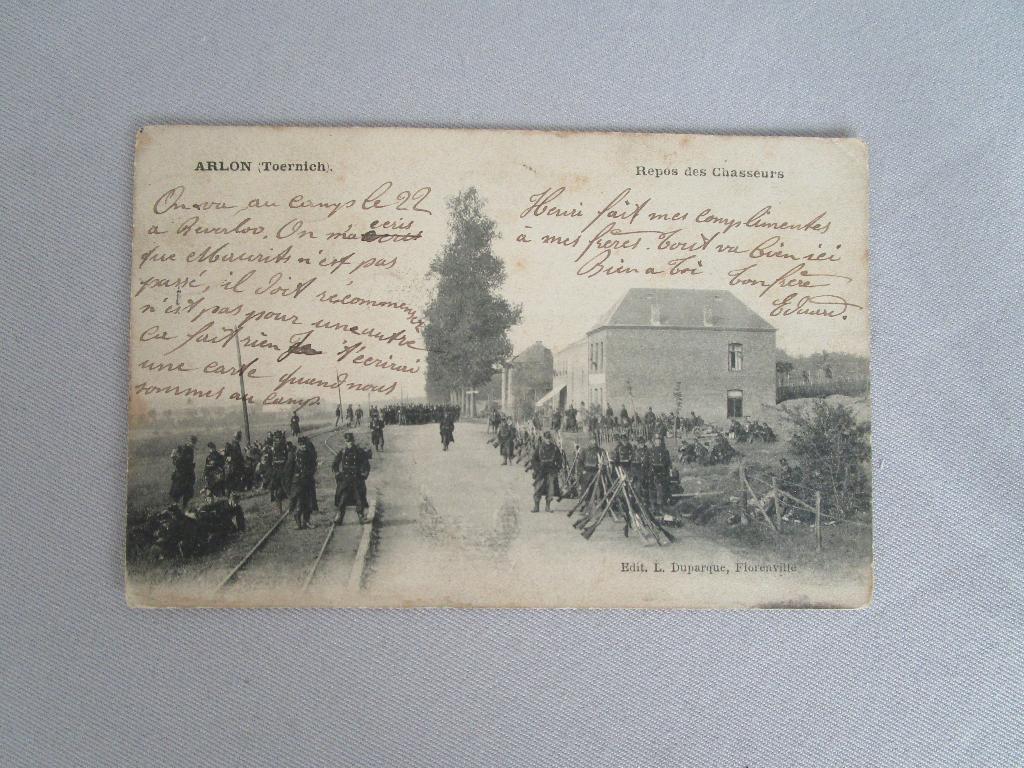 ARLON (Toernich).
Repos des Chasseurs
On va au camps le 22
a Beverloo. On m'a ecris
que Maurits n'est pas
passé, il doit recommencer
n'est pas pour une autre
ca fait rien Je t'écrirai
une carte quand nous
sommes au camp.
Henri fait mes complimentes
à mes frères. Tout va bien ici
Bien a Toi Ton frère
Eduard.
Edit. L. Duparque, Florenville